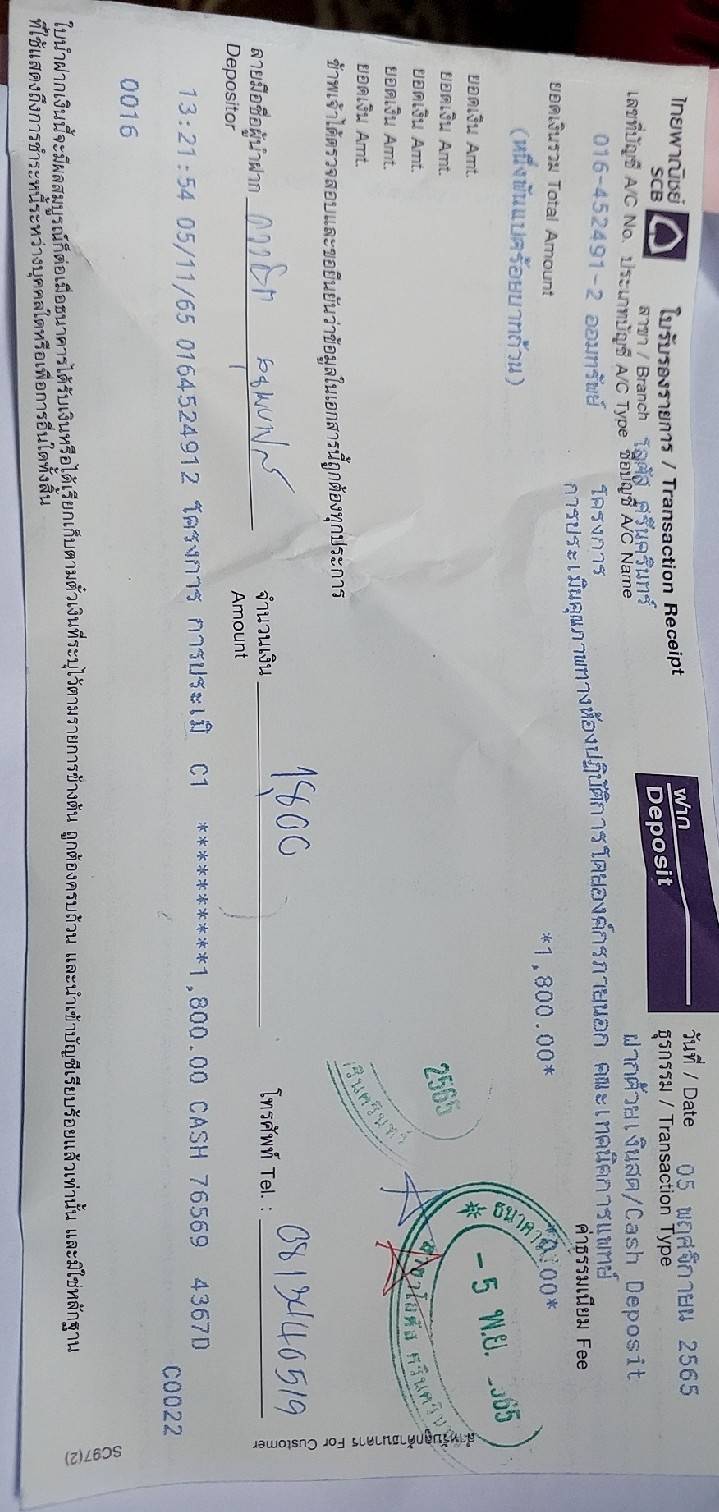 ไทยพาณิชย์
SCB
ใบรับรองรายการ / Transaction Receipt
ฝาก
Deposit
วันที่ / Date 05 พฤศจิกายน 2565
สาขา / Branch โลตัส ศรีนครินทร์
ธุรกรรม / Transaction Type
ฝากด้วยเงินสด/Cash Deposit
เลขที่บัญชี A/C No. ประเภทบัญชี A/C Type ชื่อบัญชี A/C Name
016-452491-2 ออมทรัพย์ โครงการ
การประเมินคุณภาพทางห้องปฏิบัติการโดยองค์กรภายนอก คณะเทคนิคการแพทย์
ค่าธรรมเนียม Fee
ยอดเงินรวม Total Amount *1,800.00*
(หนึ่งพันแปดร้อยบาทถ้วน)
ธนาคาร
- 5 พ.ย.
2565
ยอดเงิน Amt.
ยอดเงิน Amt.
ยอดเงิน Amt.
ยอดเงิน Amt.
ยอดเงิน Amt.
ข้าพเจ้าได้ตรวจสอบและขอยืนยันว่าข้อมูลในเอกสารนี้ถูกต้องทุกประการ
ลายมือชื่อผู้นำฝาก
Depositor
จำนวนเงิน 1,800
Amount
โทรศัพท์ Tel. :
13:21:54 05/11/65 0164524912 โครงการ การประเมิ C1 **********1,800.00 CASH 76569 4367D
C0022
0016
ใบนำฝากเงินนี้จะมีผลสมบูรณ์ก็ต่อเมื่อธนาคารได้รับเงินหรือได้เรียกเก็บตามตั๋วเงินที่ระบุไว้ตามรายการข้างต้น ถูกต้องครบถ้วน และนำเข้าบัญชีเรียบร้อยแล้วเท่านั้น และมิใช่หลักฐาน
ที่ใช้แสดงถึงการชำระหนี้ระหว่างบุคคลใดหรือเพื่อการอื่นใดทั้งสิ้น
สำหรับลูกค้าธนาคาร For Customer
SC97(2)